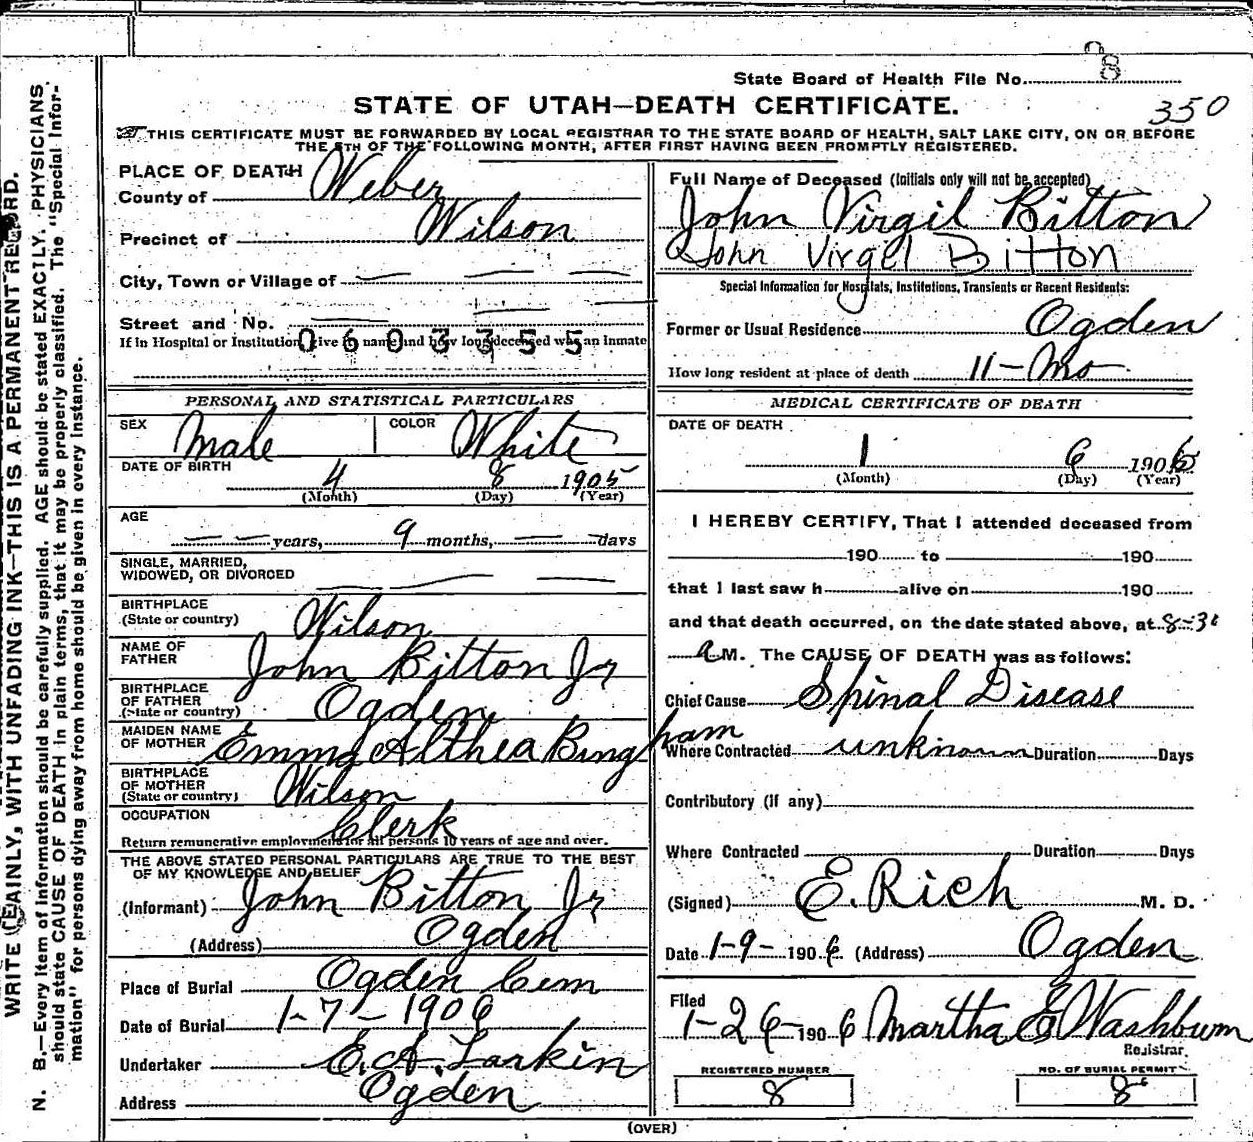 State Board of Health File No. 8
350
STATE OF UTAH—DEATH CERTIFICATE.
THIS CERTIFICATE MUST BE FORWARDED BY LOCAL REGISTRAR TO THE STATE BOARD OF HEALTH, SALT LAKE CITY, ON OR BEFORE
THE 5TH OF THE FOLLOWING MONTH, AFTER FIRST HAVING BEEN PROMPTLY REGISTERED.
PLACE OF DEATH
County of Weber
Precinct of Wilson
City, Town or Village of — — —
Street and No. — —
If in Hospital or Institution give its name and how long deceased was an inmate
0603355
PERSONAL AND STATISTICAL PARTICULARS
SEX Male COLOR White
DATE OF BIRTH 4 8 1905
(Month) (Day) (Year)
AGE
— — years, 9 months, — — days
SINGLE, MARRIED,
WIDOWED, OR DIVORCED — — —
BIRTHPLACE
(State or country) Wilson
NAME OF
FATHER John Bitton Jr
BIRTHPLACE
OF FATHER
(State or country) Ogden
MAIDEN NAME
OF MOTHER Emma Althea Bingham
BIRTHPLACE
OF MOTHER
(State or country) Wilson
OCCUPATION Clerk
Return remunerative employment for all persons 10 years of age and over.
THE ABOVE STATED PERSONAL PARTICULARS ARE TRUE TO THE BEST
OF MY KNOWLEDGE AND BELIEF
(Informant) John Bitton Jr
(Address) Ogden
Place of Burial Ogden Cem
Date of Burial 1-7-1906
Undertaker E.A. Larkin
Address Ogden
Full Name of Deceased (Initials only will not be accepted)
John Virgil Bitton
John Virgel Bitton
Special Information for Hospitals, Institutions, Transients or Recent Residents:
Former or Usual Residence Ogden
How long resident at place of death 11-Mo
MEDICAL CERTIFICATE OF DEATH
DATE OF DEATH
1 6 1906
(Month) (Day) (Year)
I HEREBY CERTIFY, That I attended deceased from
190 to 190
that I last saw h alive on 190
and that death occurred, on the date stated above, at 8-30
A M. The CAUSE OF DEATH was as follows:
Chief Cause Spinal Disease
Where Contracted unknown Duration Days
Contributory (if any)
Where Contracted Duration Days
(Signed) E. Rich M. D.
Date 1-9-1906 (Address) Ogden
Filed
1-26-1906 Martha E Washburn
Registrar.
REGISTERED NUMBER
8
NO. OF BURIAL PERMIT
8
(OVER)
WRITE PLAINLY, WITH UNFADING INK—THIS IS A PERMANENT RECORD.
N. B.—Every item of information should be carefully supplied. AGE should be stated EXACTLY. PHYSICIANS
should state CAUSE OF DEATH in plain terms, that it may be properly classified. The "Special Infor-
mation" for persons dying away from home should be given in every instance.